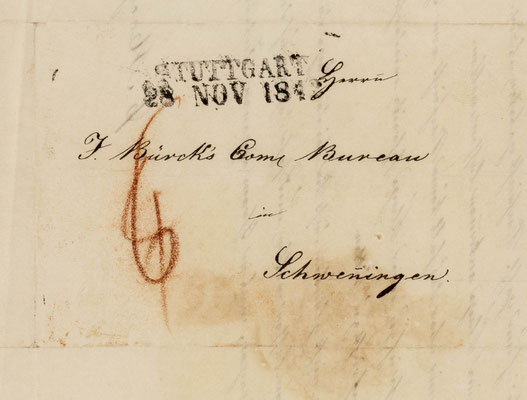 STUTTGART
28 NOV 184
Herrn
J. Bürck's Com Bureau
in
Schwenningen.
6